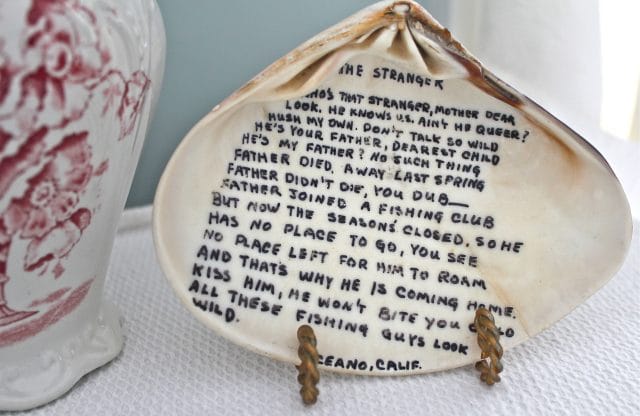 THE STRANGER
WHO'S THAT STRANGER, MOTHER DEAR
LOOK. HE KNOWS US. AIN'T HE QUEER?
HUSH MY OWN. DON'T TALK SO WILD
HE'S YOUR FATHER, DEAREST CHILD
HE'S MY FATHER? NO SUCH THING
FATHER DIED. AWAY LAST SPRING
FATHER DIDN'T DIE, YOU DUB—
FATHER JOINED A FISHING CLUB
BUT NOW THE SEASONS' CLOSED. SO HE
HAS NO PLACE TO GO, YOU SEE
NO PLACE LEFT FOR HIM TO ROAM
AND THAT'S WHY HE IS COMING HOME.
KISS HIM, HE WON'T BITE YOU
ALL THESE FISHING GUYS LOOK
WILD.
OCEANO, CALIF.